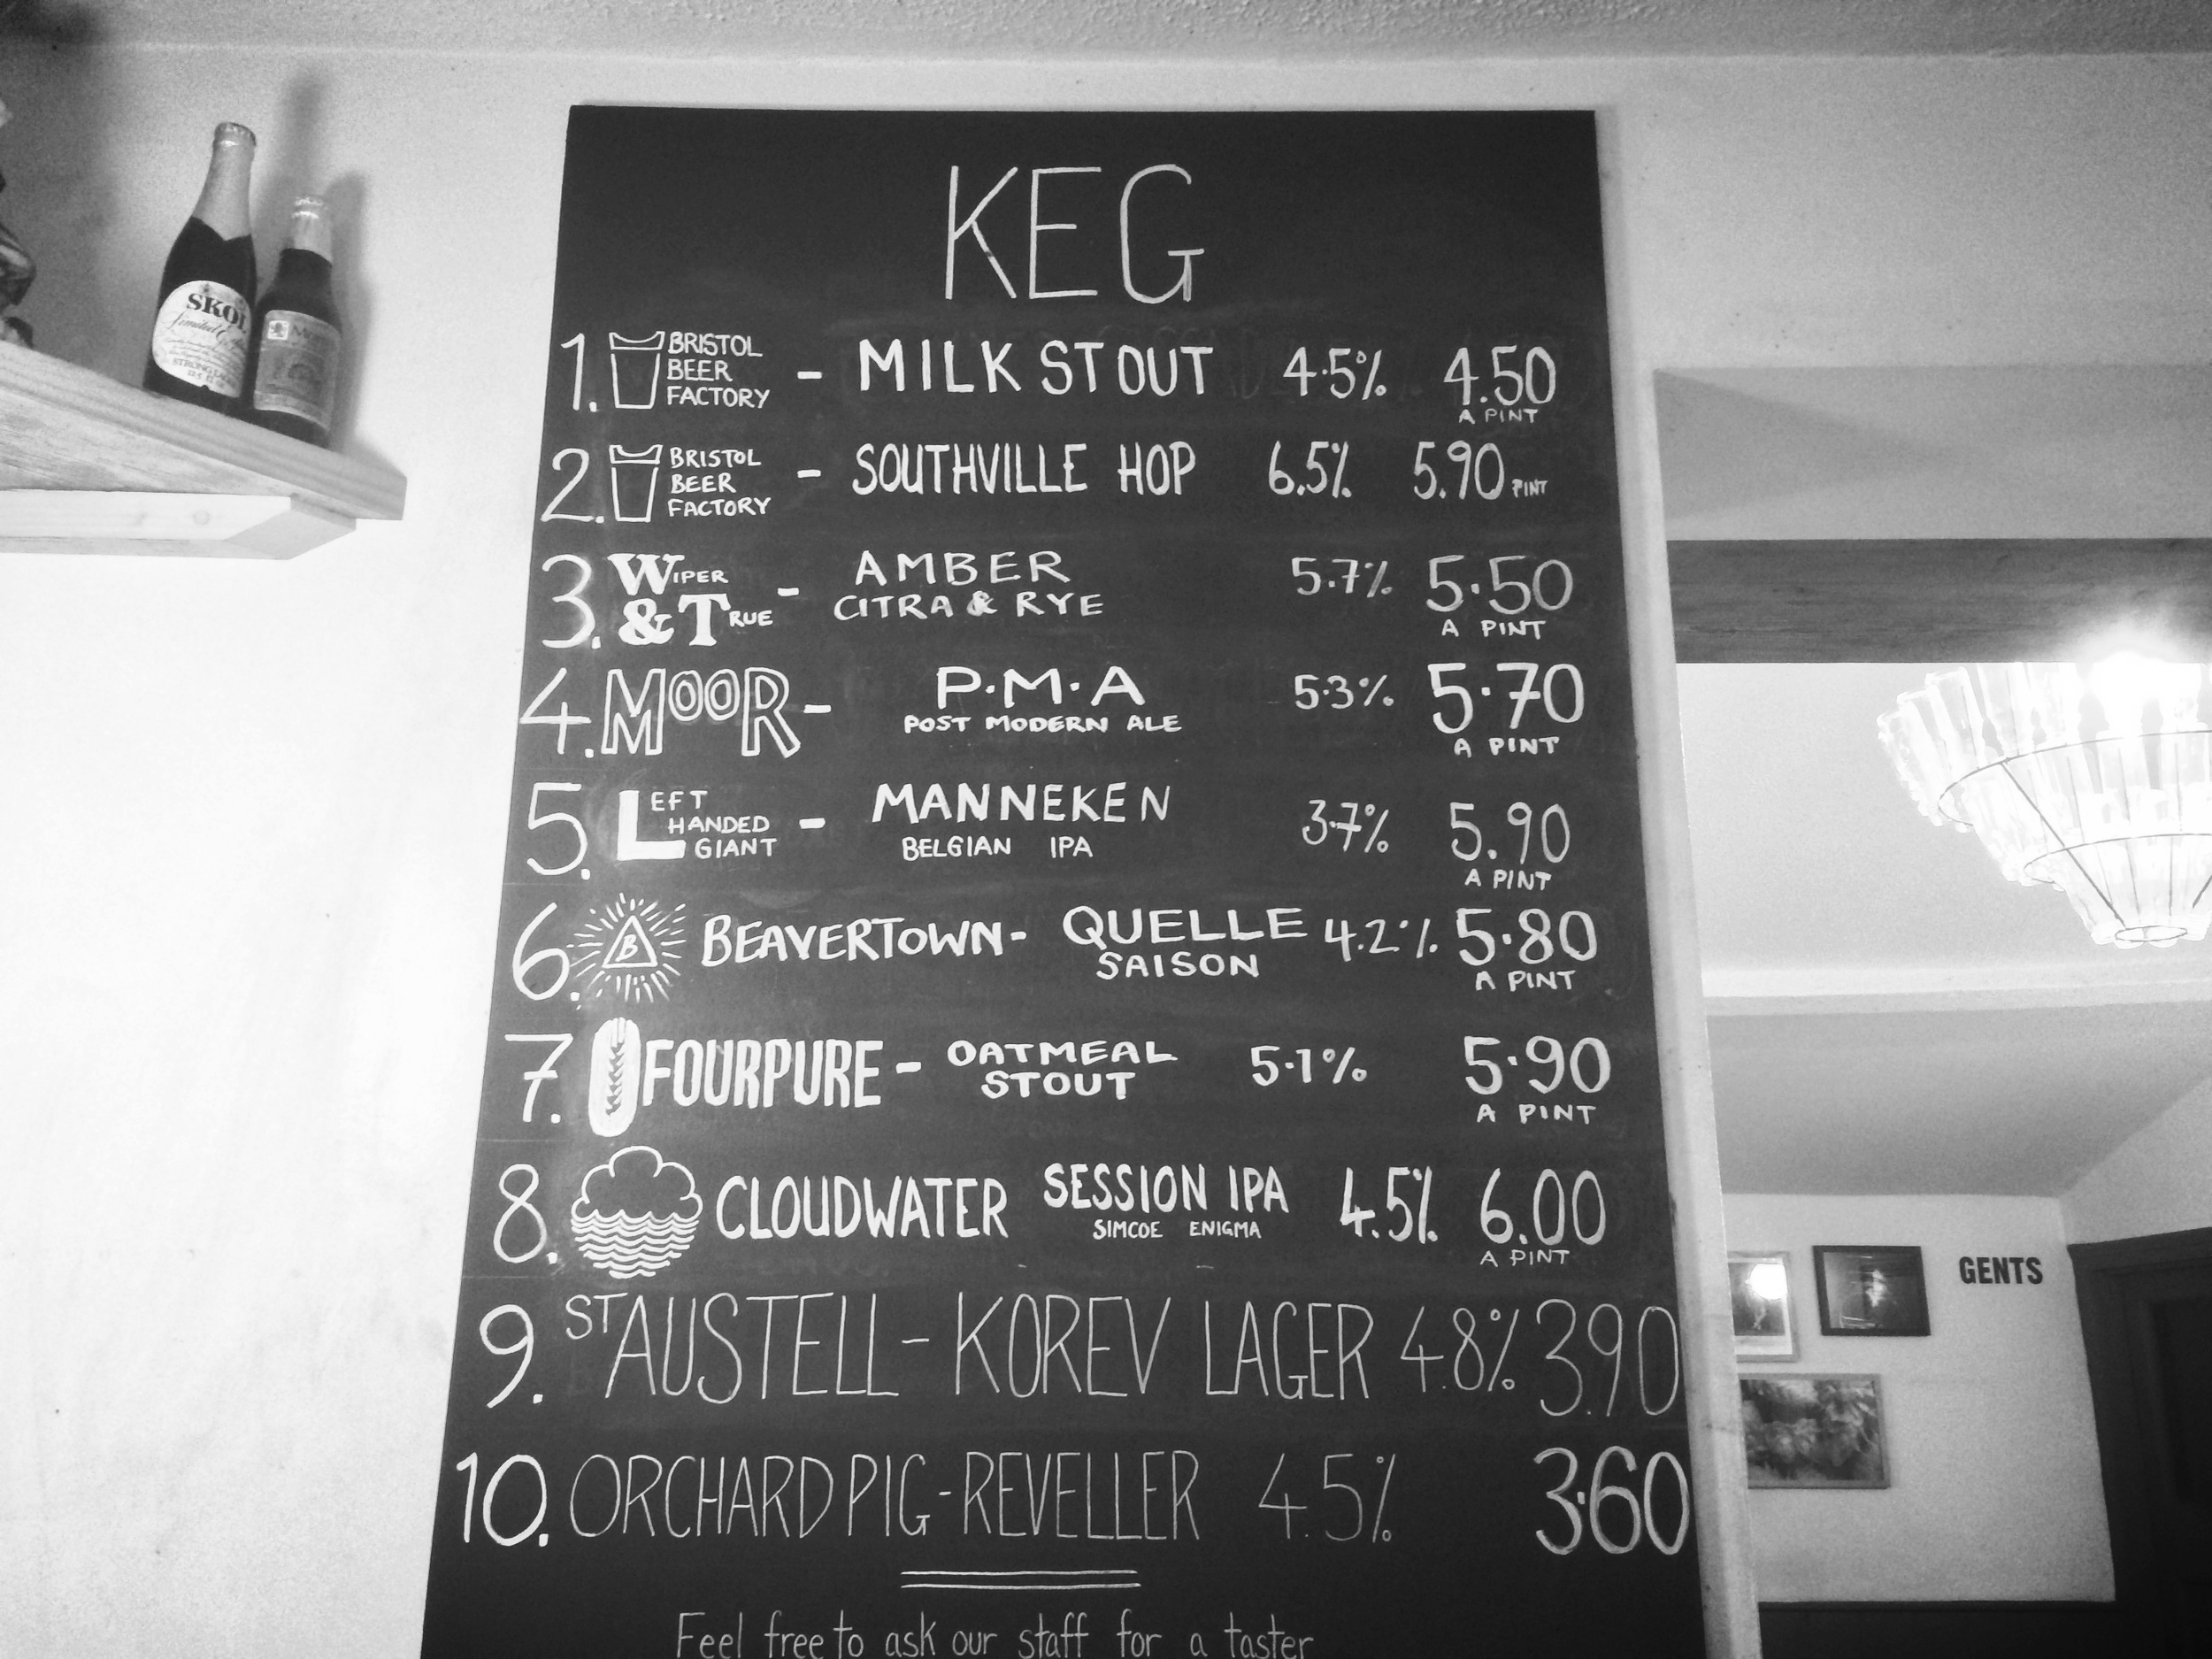 KEG
1. BRISTOL BEER FACTORY - MILK STOUT 4.5% 4.50
A PINT
2. BRISTOL BEER FACTORY - SOUTHVILLE HOP 6.5% 5.90 PINT
3. WIPER & TRUE - AMBER 5.7% 5.50
CITRA & RYE A PINT
4. MOOR - P.M.A 5.3% 5.70
POST MODERN ALE A PINT
5. LEFT HANDED GIANT - MANNEKEN 3.7% 5.90
BELGIAN IPA A PINT
6. B BEAVERTOWN - QUELLE 4.2% 5.80
SAISON A PINT
7. FOURPURE - OATMEAL 5.1% 5.90
STOUT A PINT
8. CLOUDWATER SESSION IPA 4.5% 6.00
SIMCOE ENIGMA A PINT
9. ST AUSTELL - KOREV LAGER 4.8% 3.90
10. ORCHARD PIG - REVELLER 4.5% 3.60
Feel free to ask our staff for a taster
SKOL
GENTS